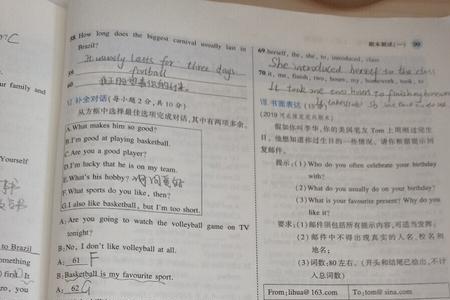 58. How long does the biggest carnival usually last in Brazil?
It usually lasts for three days
59. football
60.
VI 补全对话(每小题2分,共10分)
从方框中选择最佳选项完成对话,其中有两项多余。
A.What makes him so good?
B.I'm good at playing basketball.
C.Are you a good player?
D.I'm lucky that he is on my team.
E.What's his hobby?
F.What sports do you like, then?
G.I also like basketball, but I'm too short.
A: Are you going to watch the volleyball game on TV tonight?
B: No, I don't like volleyball at all.
A: 61 F
B: Basketball is my favourite sport.
A: 62 G
ur family and
Yourself
to Brazil
omething
) first. It
ro, you
期末测试(一) 99
69. herself, the, she, to, introduced, class
She introduced herself to the class
70. it, me, finish, two, hours, my, homework, took, to
It took me two hours to finish
VII 书面表达
假如你叫李华,你的美国笔友Tom上周刚过完生日,他想知道你过生日的一些情况。请你根据提示回复邮件。
提示:(1)Who do you often celebrate your birthday with?
(2)What do you usually do on your birthday?
(3)What is your favourite present? Why do you like it?
要求:(1)邮件须包括所有提示内容,可适当发挥;
(2)邮件中不得出现真实的人名、校名和地名;
(3)词数:80左右。(开头和结尾已给出,不计入总词数)
From: lihua@163.com To: tom@sina.com